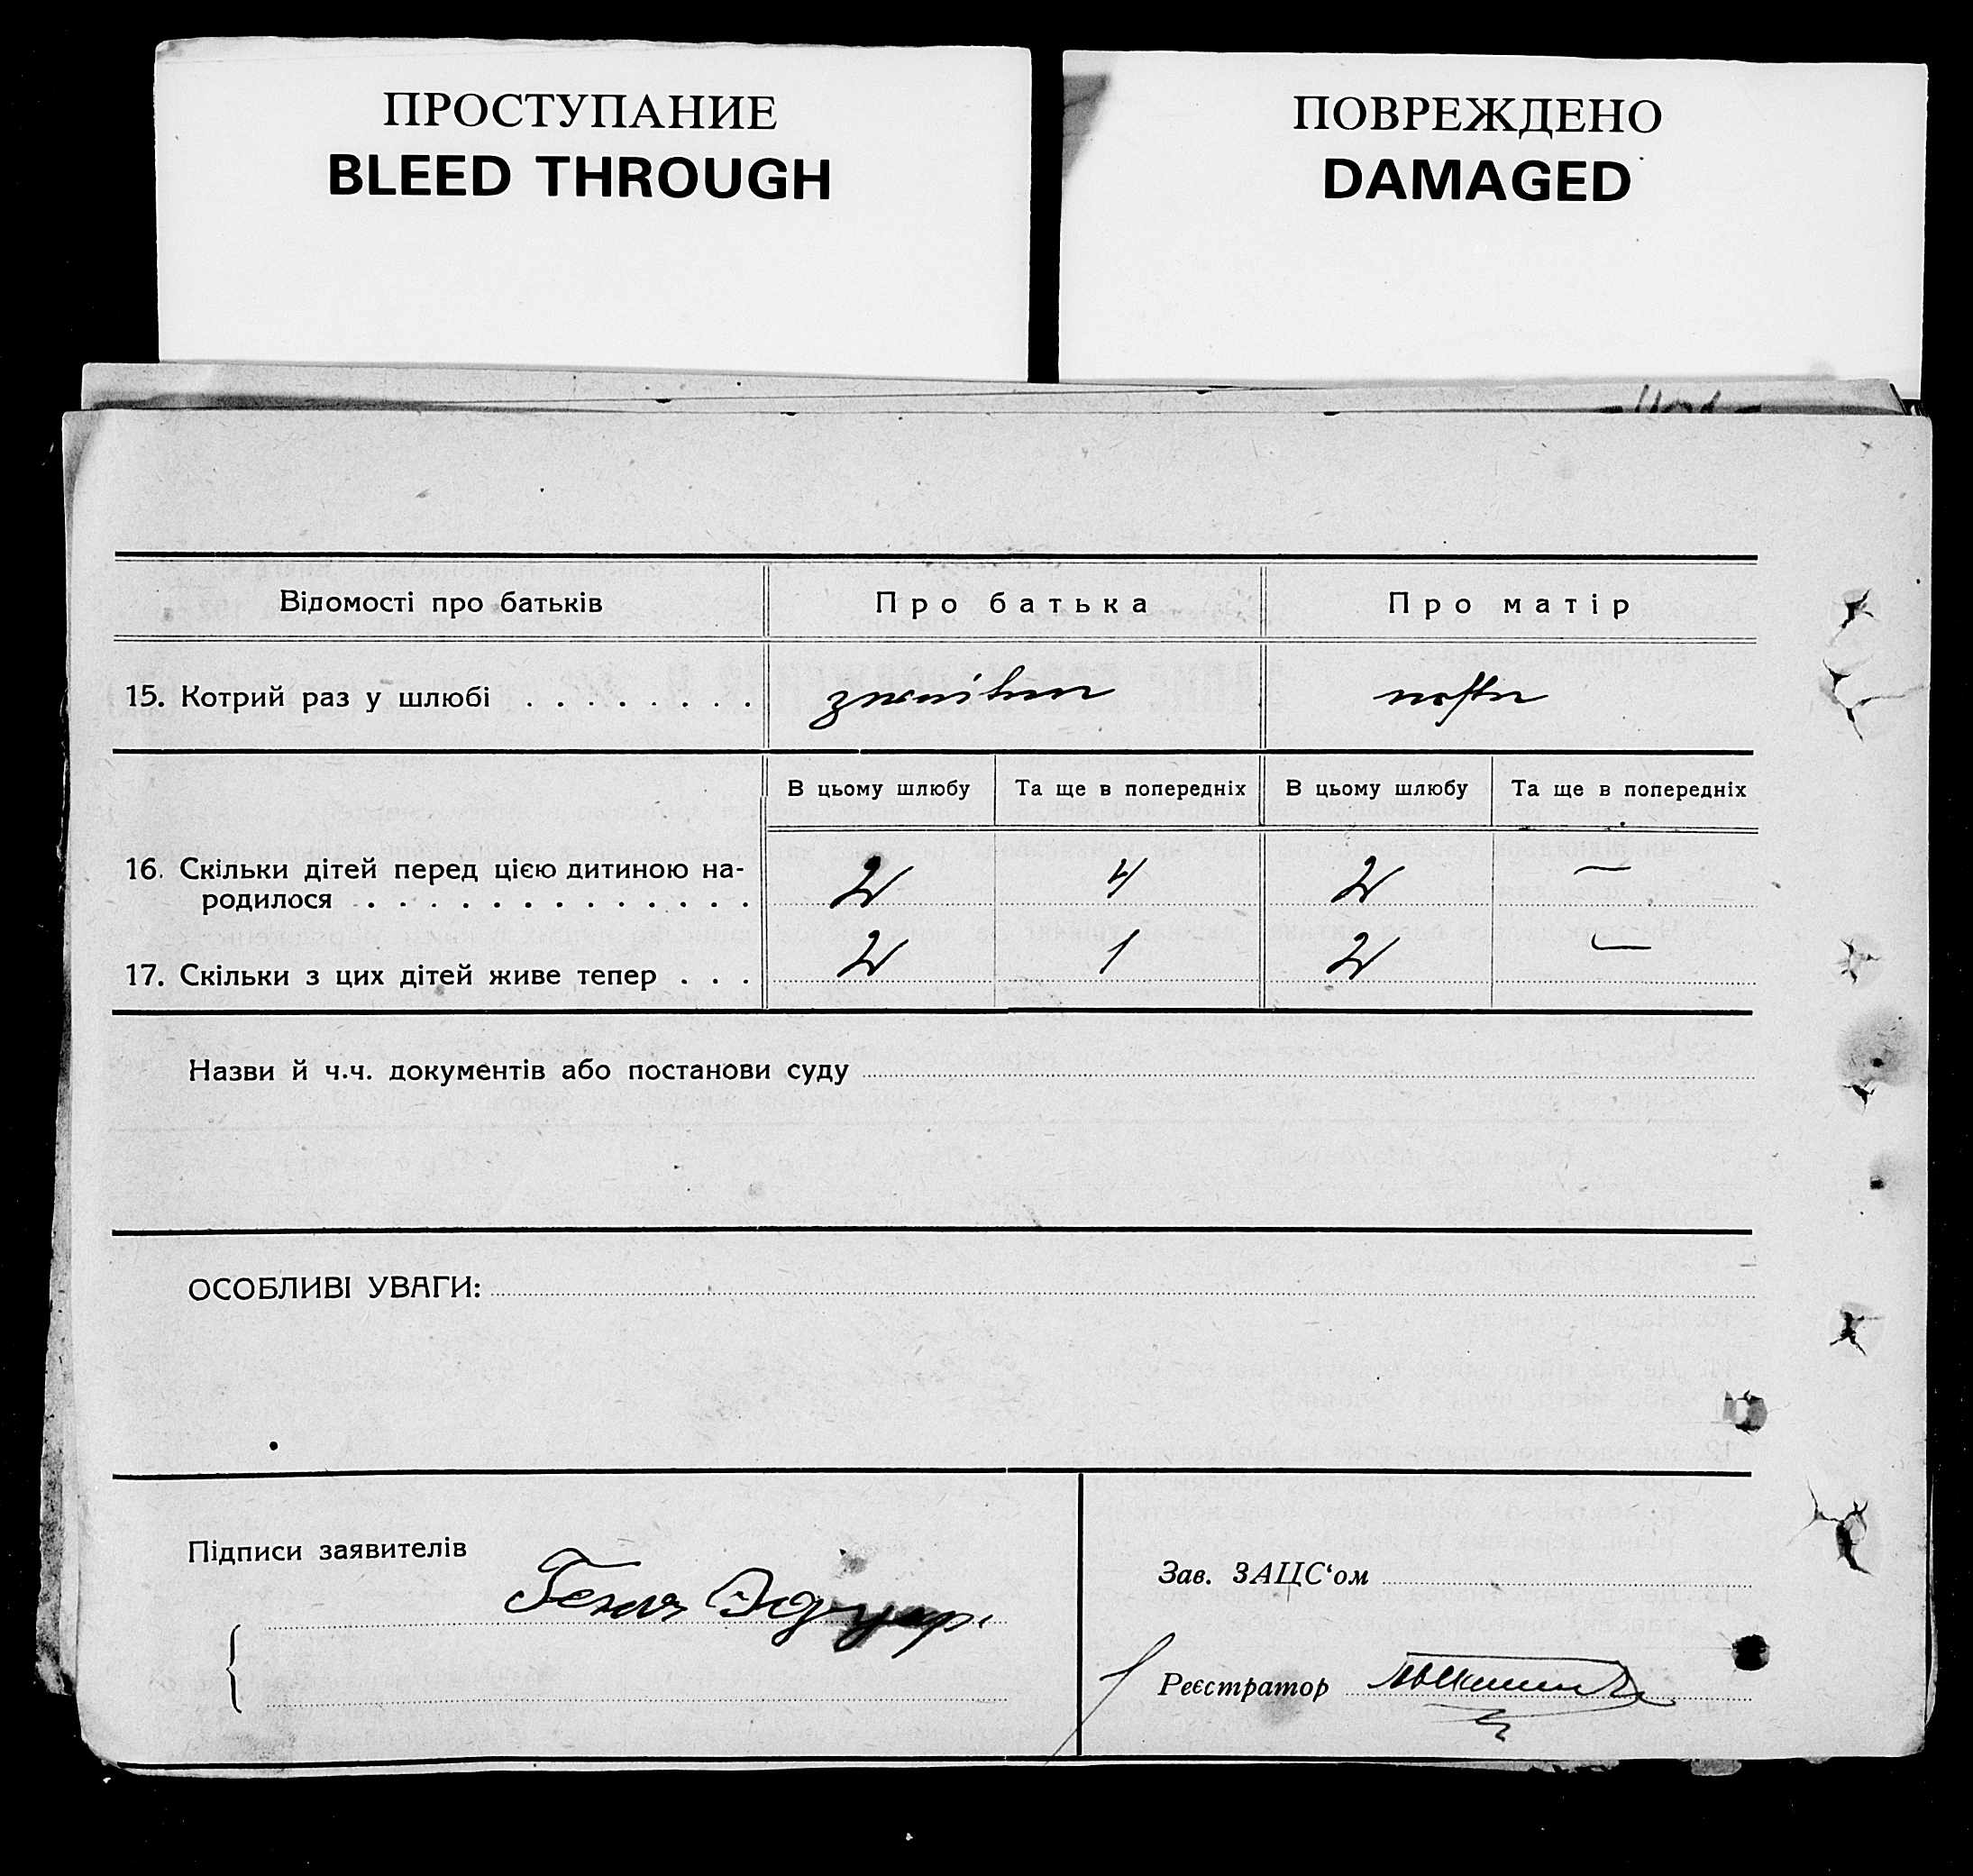 ПРОСТУПАНИЕ
BLEED THROUGH
ПОВРЕЖДЕНО
DAMAGED
Відомості про батьків Про батька Про матір
15. Котрий раз у шлюбі . . . . . . . .
В цьому шлюбу Та ще в попередніх В цьому шлюбу Та ще в попередніх
16. Скільки дітей перед цією дитиною на-
родилося . . . . . . . . . . . . . . 2 4 2 —
17. Скільки з цих дітей живе тепер . . . 2 1 2 —
Назви й ч.ч. документів або постанови суду
ОСОБЛИВІ УВАГИ:
Підписи заявителів
Зав. ЗАЦС‘ом
Реєстратор